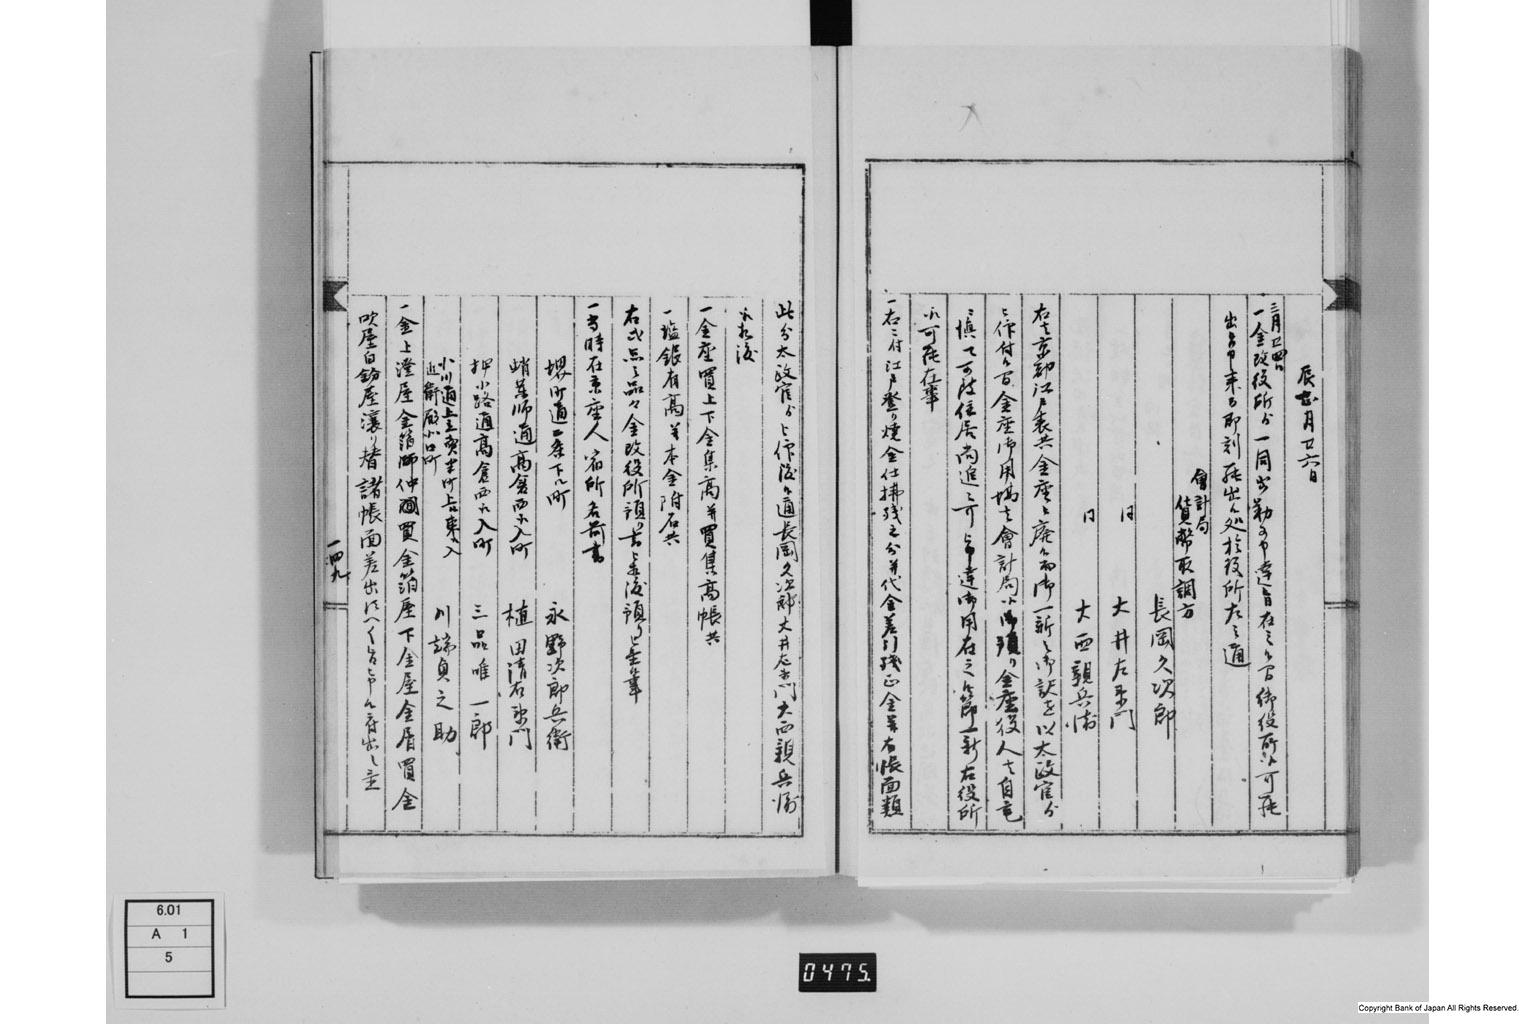 辰四月廿六日
三月廿四日
一金改役所ゟ一同出勤可申達旨在之候間御役所江可罷
出旨申来即刻罷出候処於役所左之通
會計局
貨幣取調方
長岡久次郎
同 大井左衛門
同 大西親兵衛
右者京都江戸表共金座被廃候而御一新之御訳を以太政官ゟ
被仰付候間金座御用場者會計局江御預り金座役人者自宅
ニ慎ミ可致住居尚追而可申達御用在之候節者一新右役所
江可罷在事
一右ニ付江戸登り焼金仕拂残之分并代金差引残正金并右帳面類
此分太政官ゟ被仰渡候通長岡久次郎大井左衛門大西親兵衛
江相渡
一金座買上下金集高并買集高帳共
一塩銀有高并本金附石共
右弐点之品々金改役所預り書被渡預り被置候事
一当時在京座人宿所名前書
堺町通二条下ル町 永野次郎兵衛
蛸薬師通高倉西江入町 植田清右衛門
押小路通高倉西江入町 三品唯一郎
小川通上立売半町上ル東入
近衛殿小口町 川端貞之助
一金上澄屋金箔師仲間買金箔屋下金屋金屑買金
吹屋白粉屋譲り替諸帳面差出
一四九
6.01
A 1
5
0475.
Copyright Bank of Japan All Rights Reserved.